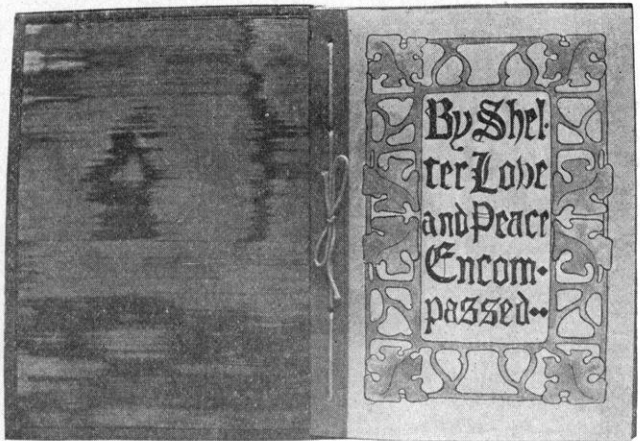 By Shel-
ter Love
and Peace
Encom-
passed··